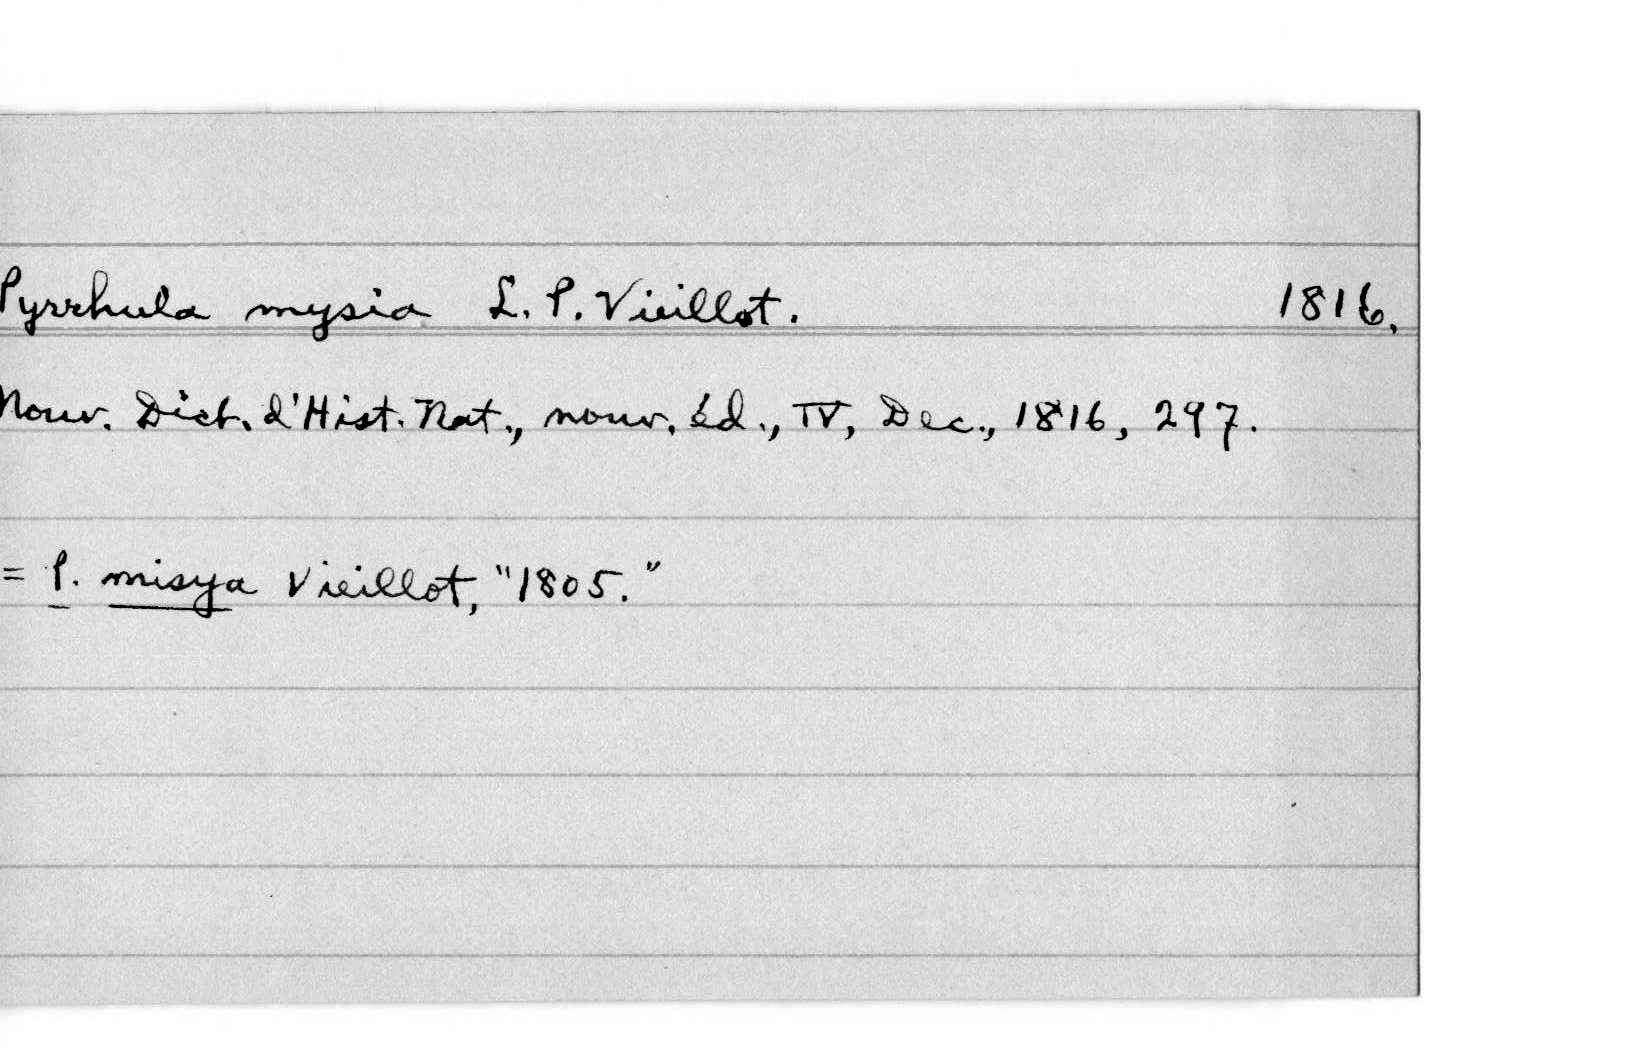 Pyrrhula mysia L. P. Vieillot. 1816.
Nouv. Dict. d'Hist. Nat., nouv. éd., IV, Dec., 1816, 297.
= P. misya Vieillot, "1805."